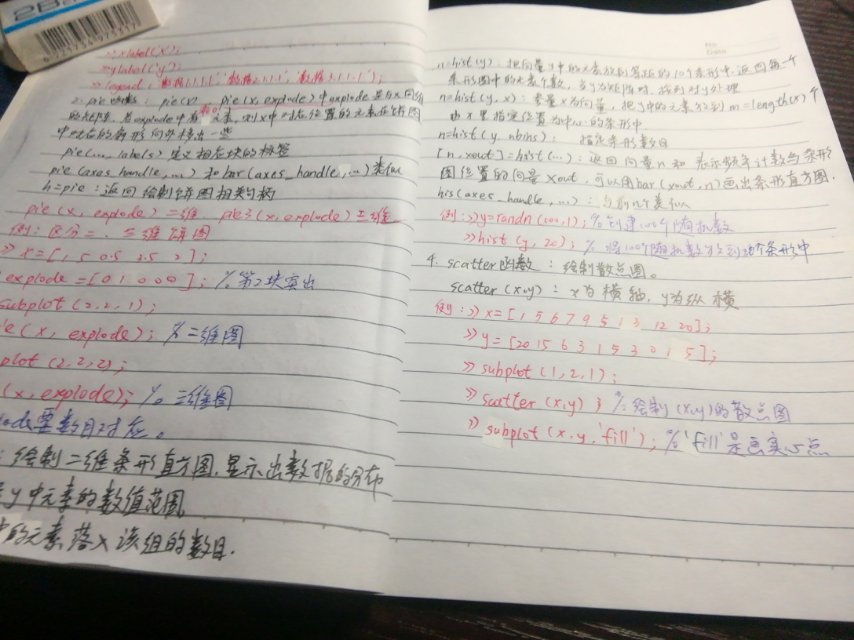 2B
6 921734 975317
>> xlabel('x');
>> ylabel('y');
>> legend('数据1.1.1.1','数据2.1.1.1','数据3.1.1.1');
2. pie pie(x) pie(x, explode)中explode是与x同
的矩阵，若explode中有非0元素，则x中对应位置的元素在饼图
中对应的扇形向外移出一些
pie(…, labels) 定义相应块的标签
pie(axes_handle, …) 和 bar(axes_handle, …) 类似
h=pie：返回绘制饼图相关句柄
pie(x, explode)二维 pie3(x, explode)三维
例：区分二、三维饼图
>> x=[1,5 0.5 2.5 2];
explode=[0 1 0 0 0]; %第2块突出
subplot(2,2,1);
e(x, explode); %二维图
plot(2,2,2);
(x, explode); %三维图
ode要数目对应。
：绘制二维条形直方图，显示出数据的分布
y中元素的数值范围
中的元素落入该组的数目.
n=hist(y)：把向量y中的元素放到等距的10个条形中，返回每一个
条形图中的元素个数，若y为矩阵时，按列对y处理
n=hist(y, x)：变量x为向量，把y中的元素分到m=length(x)个
由x里指定位置为中心的条形中.
n=hist(y, nbins)： 指定条形数目
[n, xout]=hist(…)：返回向量n和表示频率计数与条形
图位置的向量xout，可以用bar(xout, n)画出条形直方图.
his(axes_handle, …)：与前几个类似
例：>> y=randn(100,1); %创建100个随机数
>> hist(y, 20); %将100个随机数分到20个条形中
4. scatter函数：绘制散点图。
scatter(x,y)：x为横轴，y为纵横
例：>> x=[1 5 6 7 9 5 1 3 12 20];
>> y=[20 15 6 3 1 5 3 0 1 5];
>> subplot(1,2,1);
>> scatter(x,y); %绘制(x,y)的散点图
>> subplot(x.y,'fill'); %'fill'是画实心点